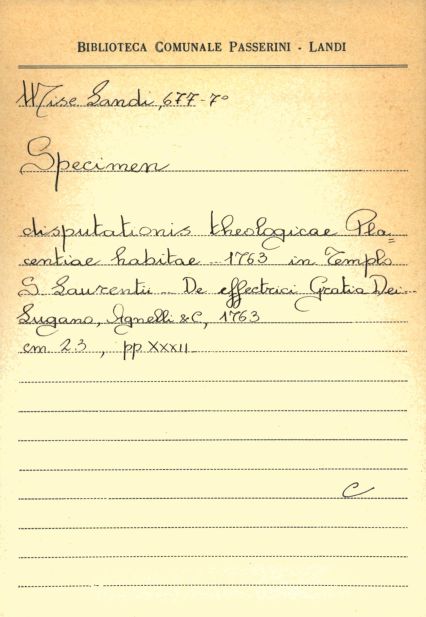 BIBLIOTECA COMUNALE PASSERINI - LANDI
Misc Landi, 677-7°
Specimen
disputationis theologicae Pla=
centiae habitae .. 1763 in Templo
S. Laurentii .. De effectrici Gratia Dei..
Lugano, Agnelli & C, 1763
cm 23, pp XXXII
C